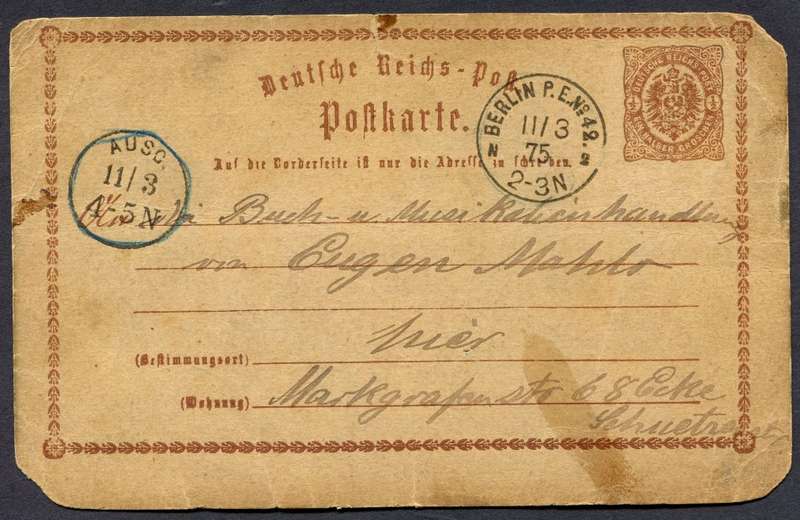 Deutsche Reichs-Post
Postkarte.
Auf die Vorderseite ist nur die Adresse zu schreiben.
DEUTSCHE REICHS-POST
½
½
EIN HALBER GROSCHEN
BERLIN P.E. No 48.
11/3
75
2-3N
AUSG.
11/3
4-5N
An die Buch- u. Musikalienhandlung
von Eugen Mahlo
hier
(Bestimmungsort)
(Wohnung) Markgrafenstr 68 Ecke